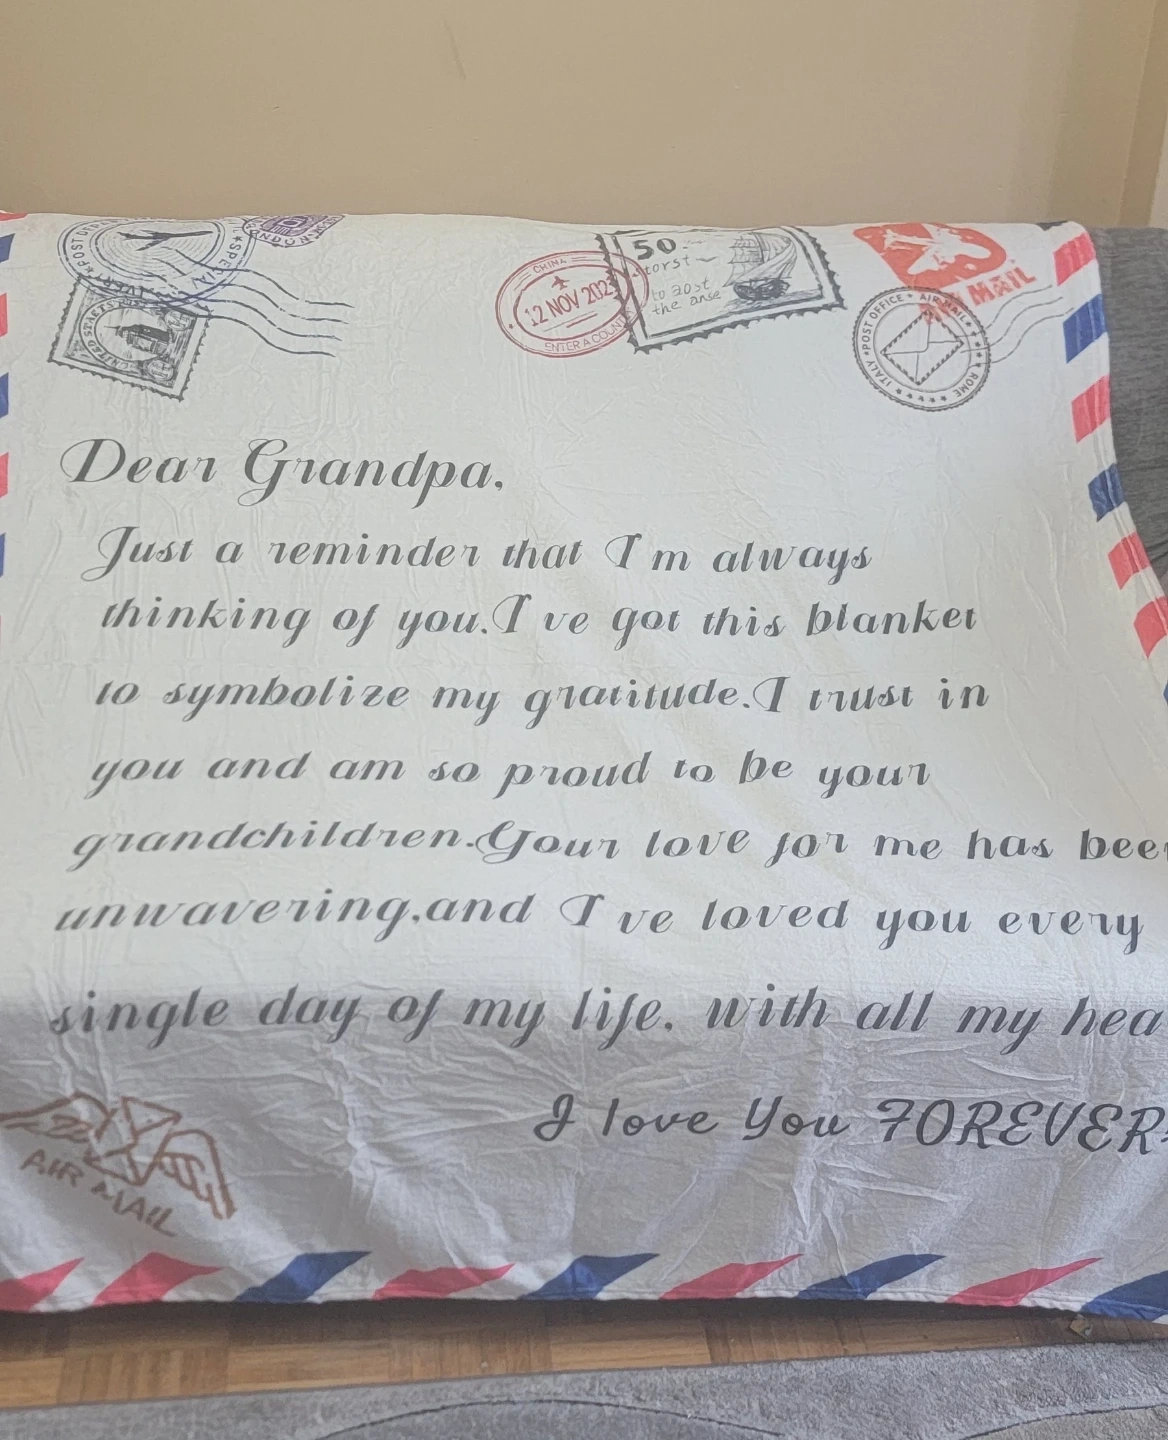 POST OFFICE
SPECIAL
LONDON
UNITED STATES
CHINA
12 NOV 202
ENTER A COUNT
50
torst
to 20st
the anse
MAIL
POST OFFICE ★ AIR MAIL
ITALY
ROME
Dear Grandpa,
Just a reminder that I m always
thinking of you.I ve got this blanket
to symbolize my gratitude.I trust in
you and am so proud to be your
grandchildren.Your love for me has bee
unwavering,and I ve loved you every
single day of my life, with all my hea
I love You FOREVER
AIR MAIL